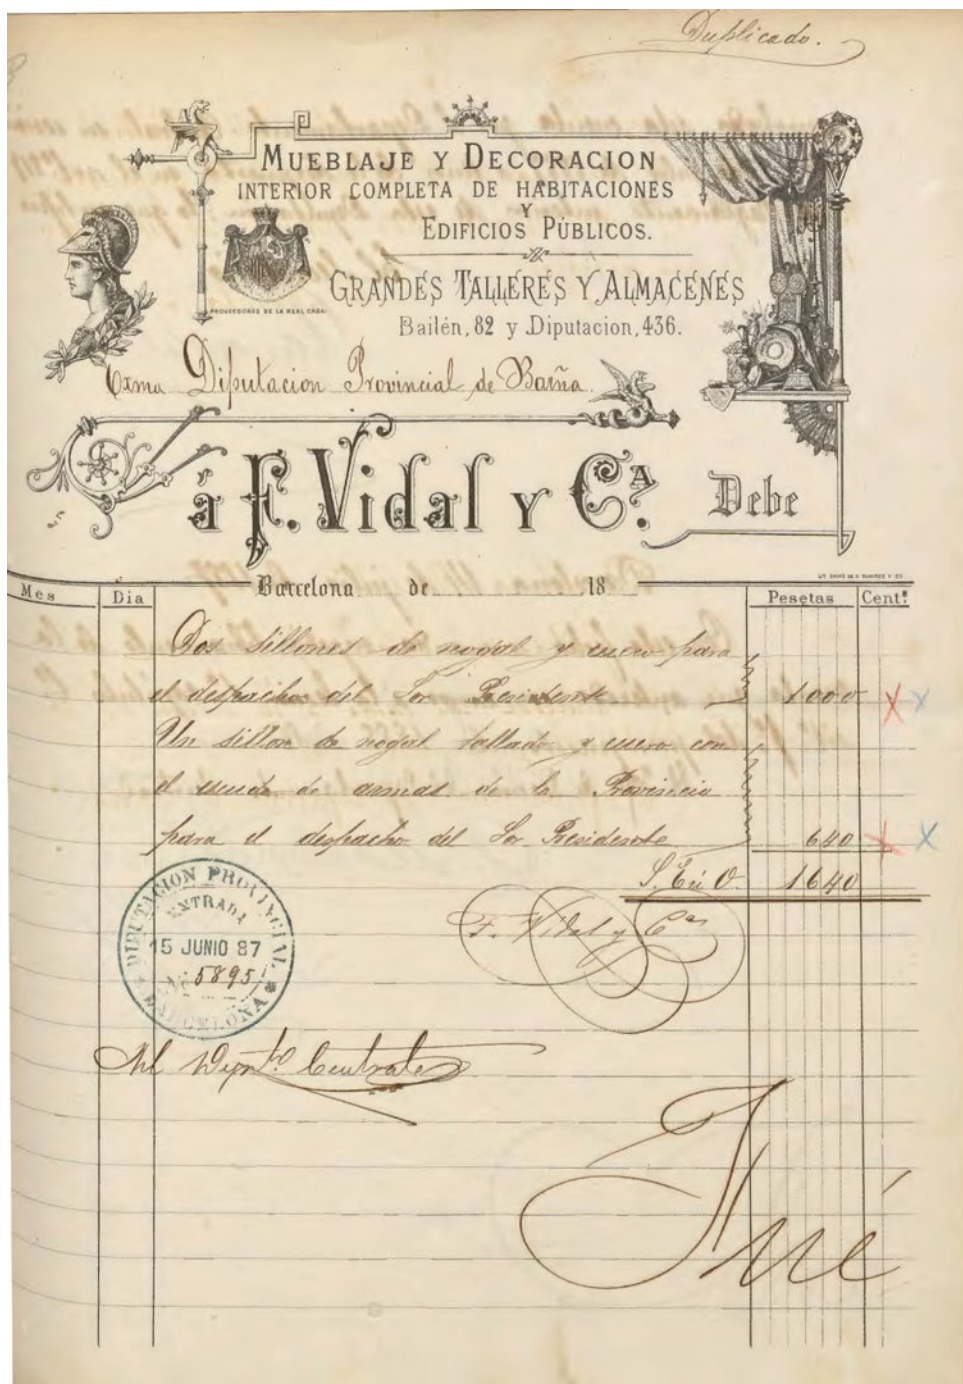 Duplicado.
MUEBLAJE Y DECORACION
INTERIOR COMPLETA DE HABITACIONES
Y
EDIFICIOS PÚBLICOS.
GRANDES TALLERES Y ALMACENES
PROVEEDORES DE LA REAL CASA
Bailén, 82 y Diputacion, 436.
Exma Diputacion Provincial de Barña.
á F. Vidal y Cª. Debe
Barcelona de 18
Mes Dia Pesetas Centˢ
Dos sillones de nogal y cuero para
el despacho del Sor Presidente 1000
Un sillon de nogal tallado y cuero con
el escudo de armas de la Provincia
para el despacho del Sor Presidente 640
S. E. ú O. 1640
F. Vidal y Cª
DIPUTACION PROVINCIAL
ENTRADA
15 JUNIO 87
5895
BARCELONA
Al Depto Central